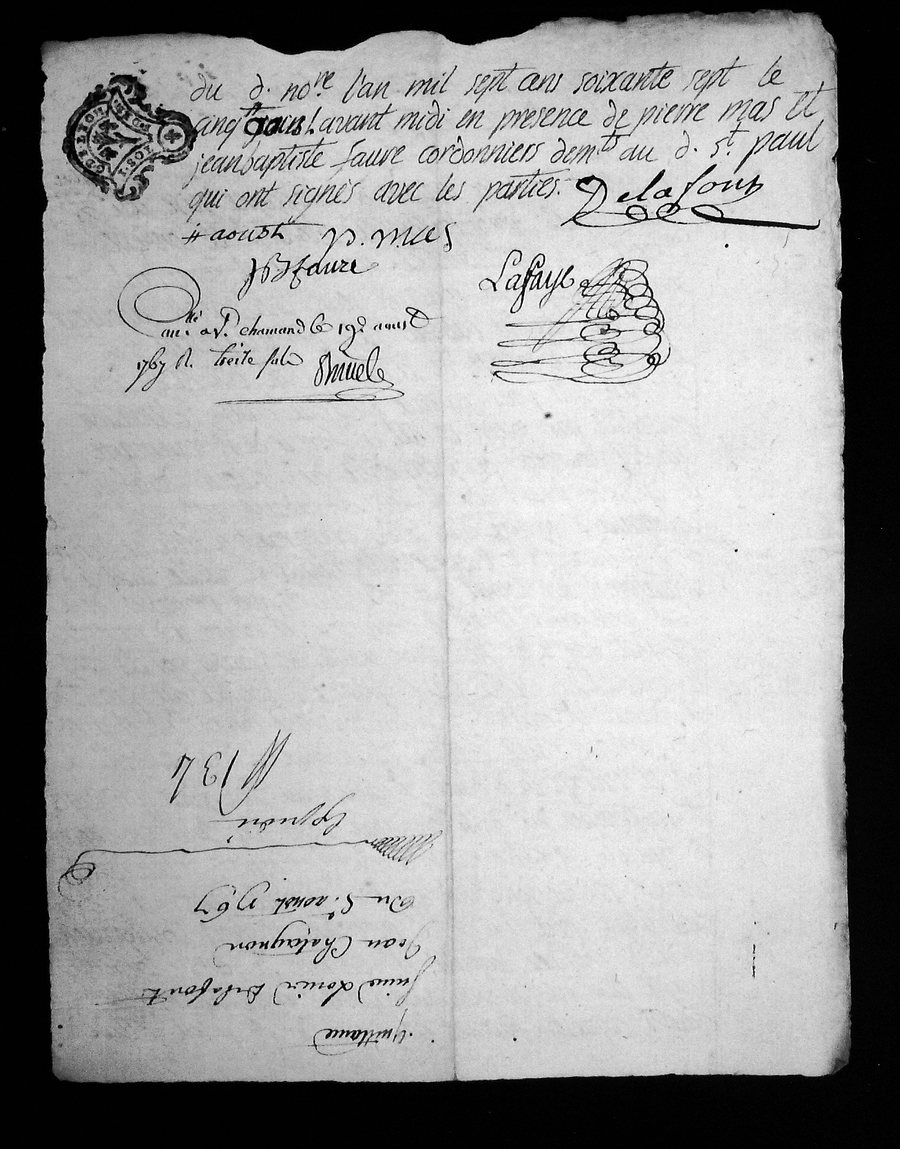 du d. no.re l'an mil sept cens soixante sept le
cinq aoust avant midi en presence de pierre mas et
jean baptiste faure cordonniers dem.ts au d. s.t paul
qui ont signés avec les parties. Delafont
aoust p. mas
JB faure
Lafaye
chamand le 19.e aoust
1767 R. treize sols
Quittance
Louis Delafont
Jean Chatagnon
Du 5.e aoust 1767
Expedié